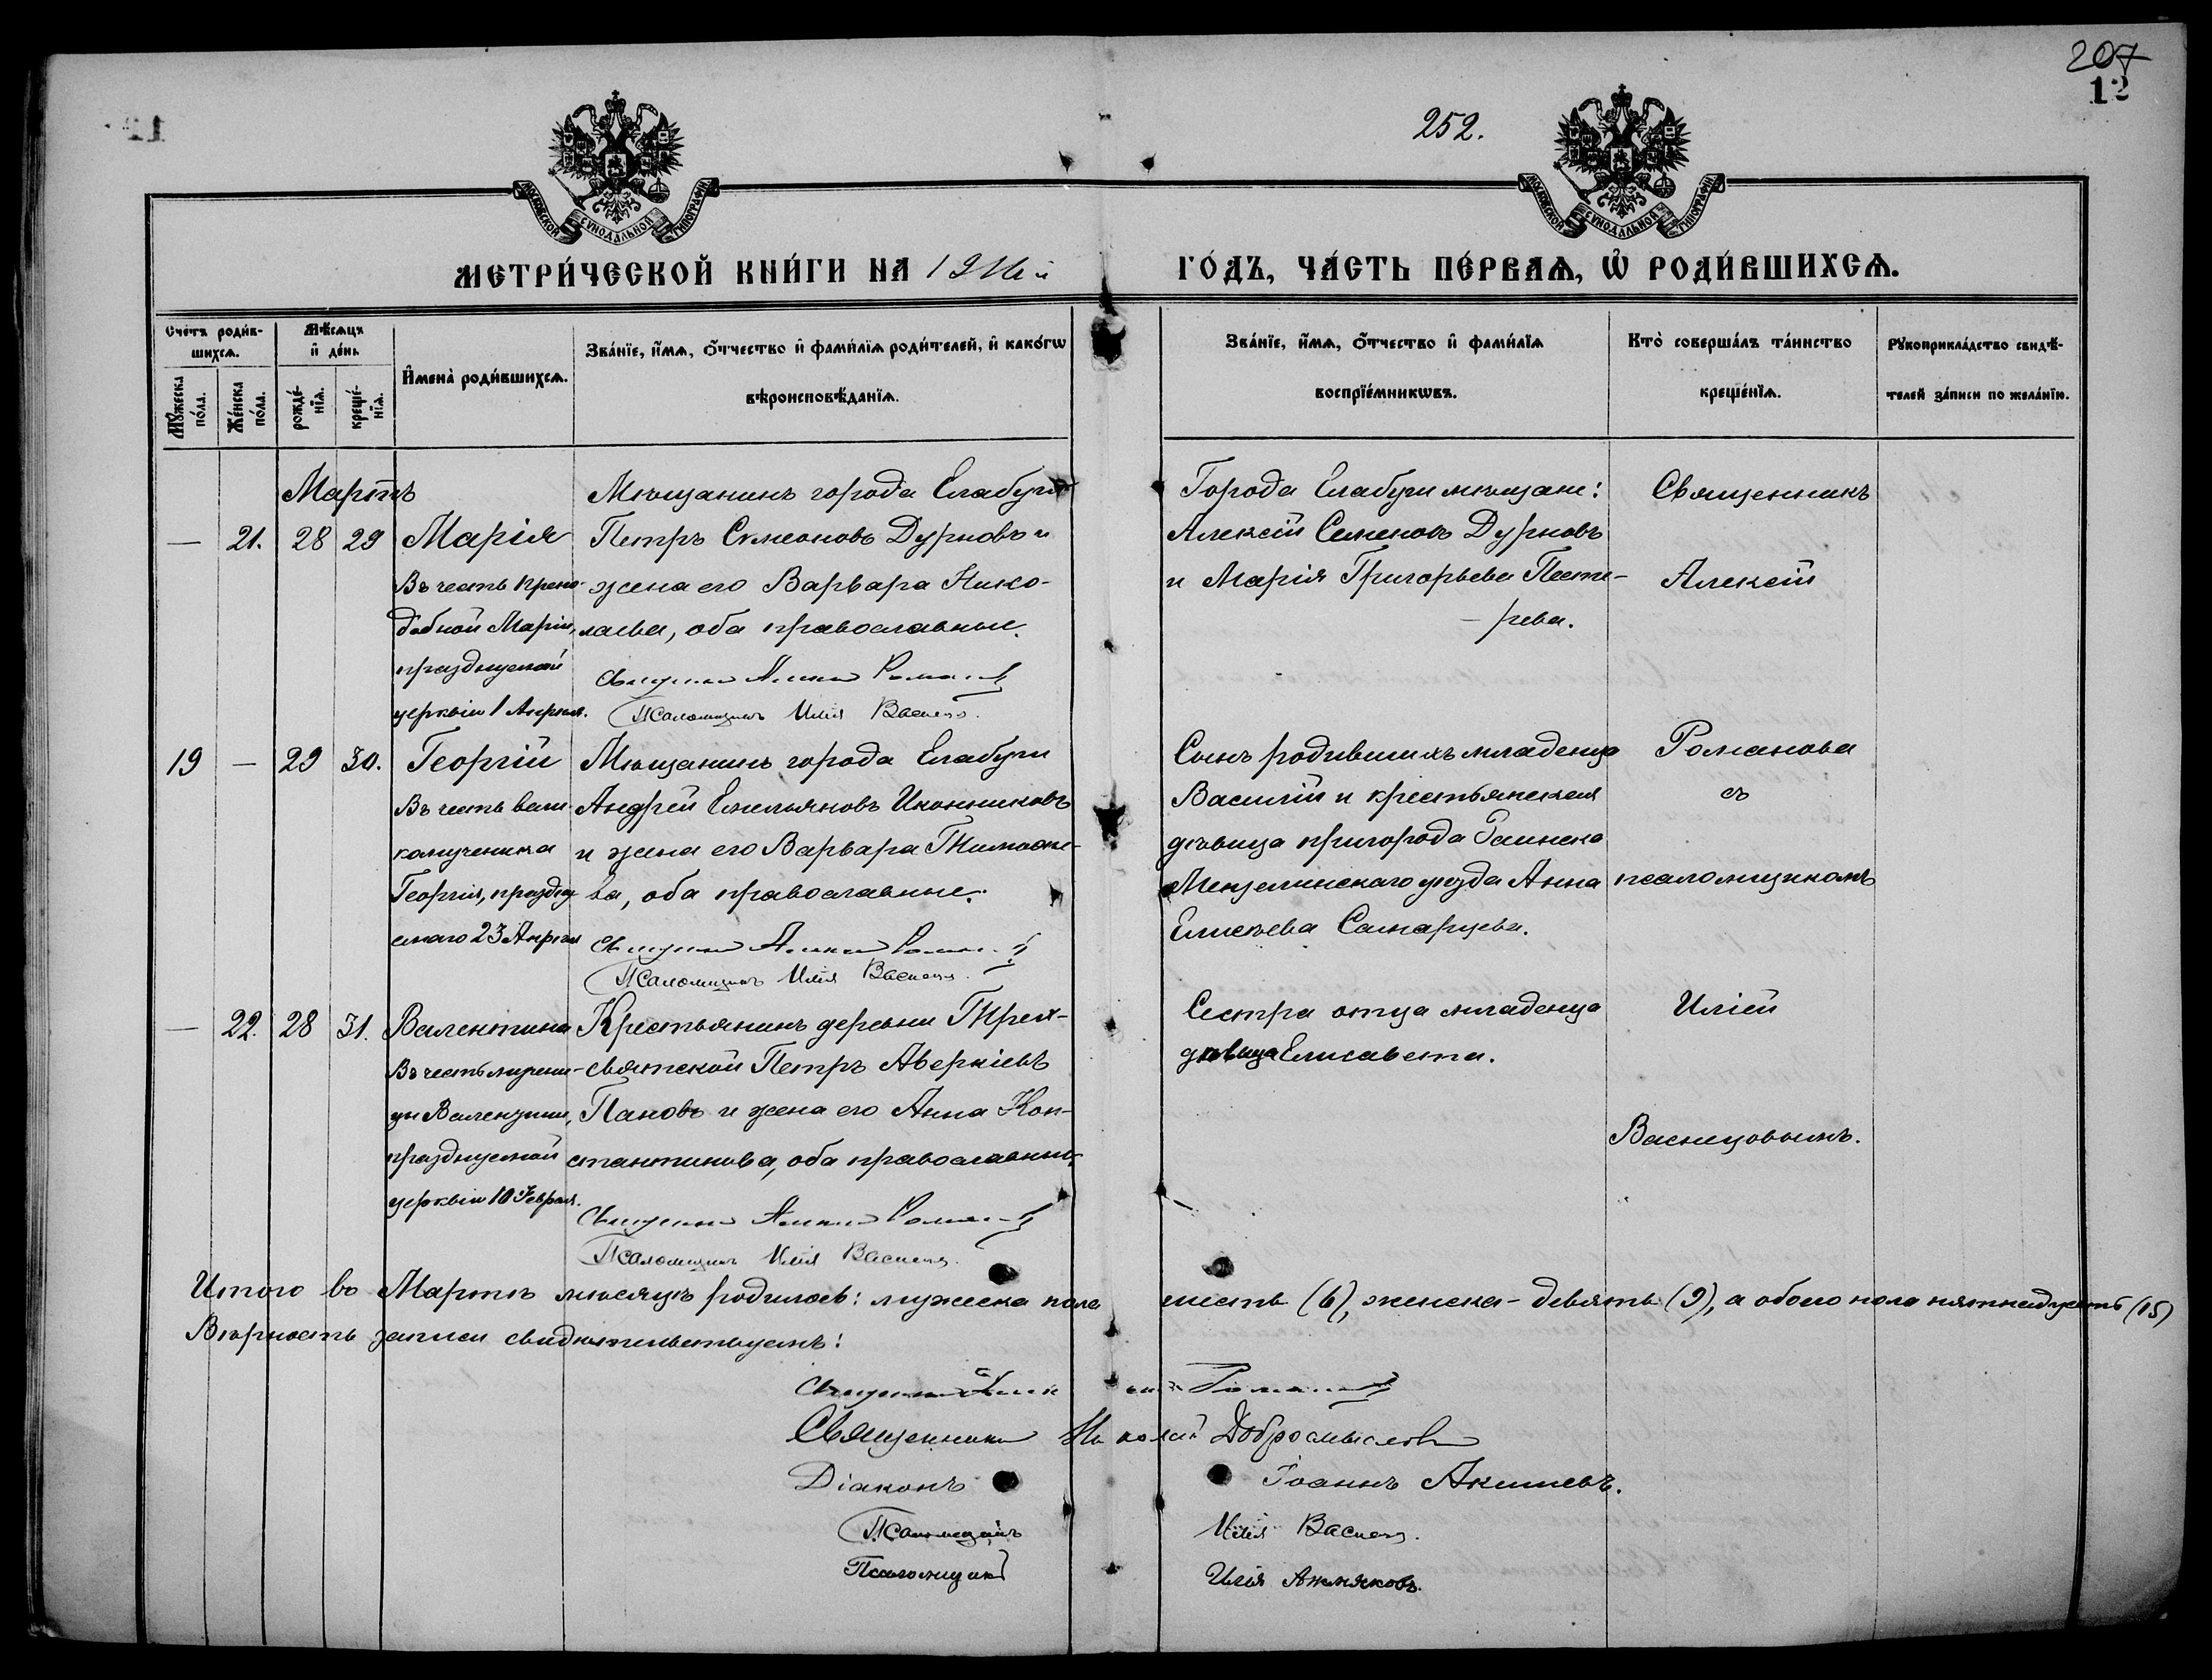 207
12
252.
МОСКОВСКОЙ СѴНОДАЛЬНОЙ ТИПОГРАФІИ
МОСКОВСКОЙ СѴНОДАЛЬНОЙ ТИПОГРАФІИ
МЕТРИ́ЧЕСКОЙ КНИ́ГИ НА 1911й ГО́ДЪ, ЧА́СТЬ ПЕ́РВАѦ, Ѡ҆ РОДИ́ВШИХСѦ.
Сче́тъ роди́в-
шихсѧ.
Мѣ́сѧцъ
и҆ де́нь
Мꙋ́жеска
по́ла.
Же́нска
по́ла.
рожде́-
нїѧ.
креще́-
нїѧ.
И҆мена̀ роди́вшихсѧ.
Зва́нїе, и҆́мѧ, ѻ҆́тчество и҆ фами́лїѧ роди́телей, и҆ како́гѡ
вѣроисповѣ́данїѧ.
Зва́нїе, и҆́мѧ, ѻ҆́тчество и҆ фами́лїѧ
воспрїе́мникѡвъ.
Кто̀ соверша́лъ та́инство
креще́нїѧ.
Рꙋкоприкла́дство свидѣ́-
телей за́писи по жела́нїю.
Мартъ
— 21. 28 29 Марія
Въ честь препо-
добной Маріи,
празднуемой
церквію 1 Апрѣля.
Мѣщанинъ города Елабуги
Петръ Симеоновъ Дурновъ и
жена его Варвара Нико-
лаева, оба православные.
Священникъ Алексій Романовъ
Псаломщикъ Илія Васнецовъ.
Города Елабуги мѣщане:
Алексій Семеновъ Дурновъ
и Марія Григорьева Песте-
рева.
Священникъ
Алексій
19 — 29 30. Георгій
Въ честь вели-
комученика
Георгія, праздну-
емаго 23 Апрѣля
Мѣщанинъ города Елабуги
Андрей Емельяновъ Иконниковъ
и жена его Варвара Тимофее-
ва, оба православные.
Священникъ Алексій Романовъ
Псаломщикъ Илія Васнецовъ.
Сынъ родившихъ младенца
Василій и крестьянская
дѣвица пригорода Заинска
Мензелинскаго уѣзда Анна
Елисѣева Самарцева.
Романовъ
съ
псаломщикомъ
— 22. 28 31. Валентина
Въ честь мучени-
цы Валентины,
празднуемой
церквію 10 Февраля.
Крестьянинъ деревни Трех-
святской Петръ Аверкіевъ
Пановъ и жена его Анна Кон-
стантинова, оба православные.
Священникъ Алексій Романовъ
Псаломщикъ Илія Васнецовъ.
Сестра отца младенца
дѣвица Елисавета.
Иліей
Васнецовымъ.
Итого въ Мартѣ мѣсяцѣ родилось: мужеска пола шесть (6), женска - девять (9), а обоего пола пятнадцать (15)
Вѣрность записи свидѣтельствуемъ:
Священникъ Алексій Романовъ
Священникъ Николай Добросмысловъ
Діаконъ Іоаннъ Акишевъ.
Псаломщикъ Илія Васнецовъ.
Псаломщикъ Илія